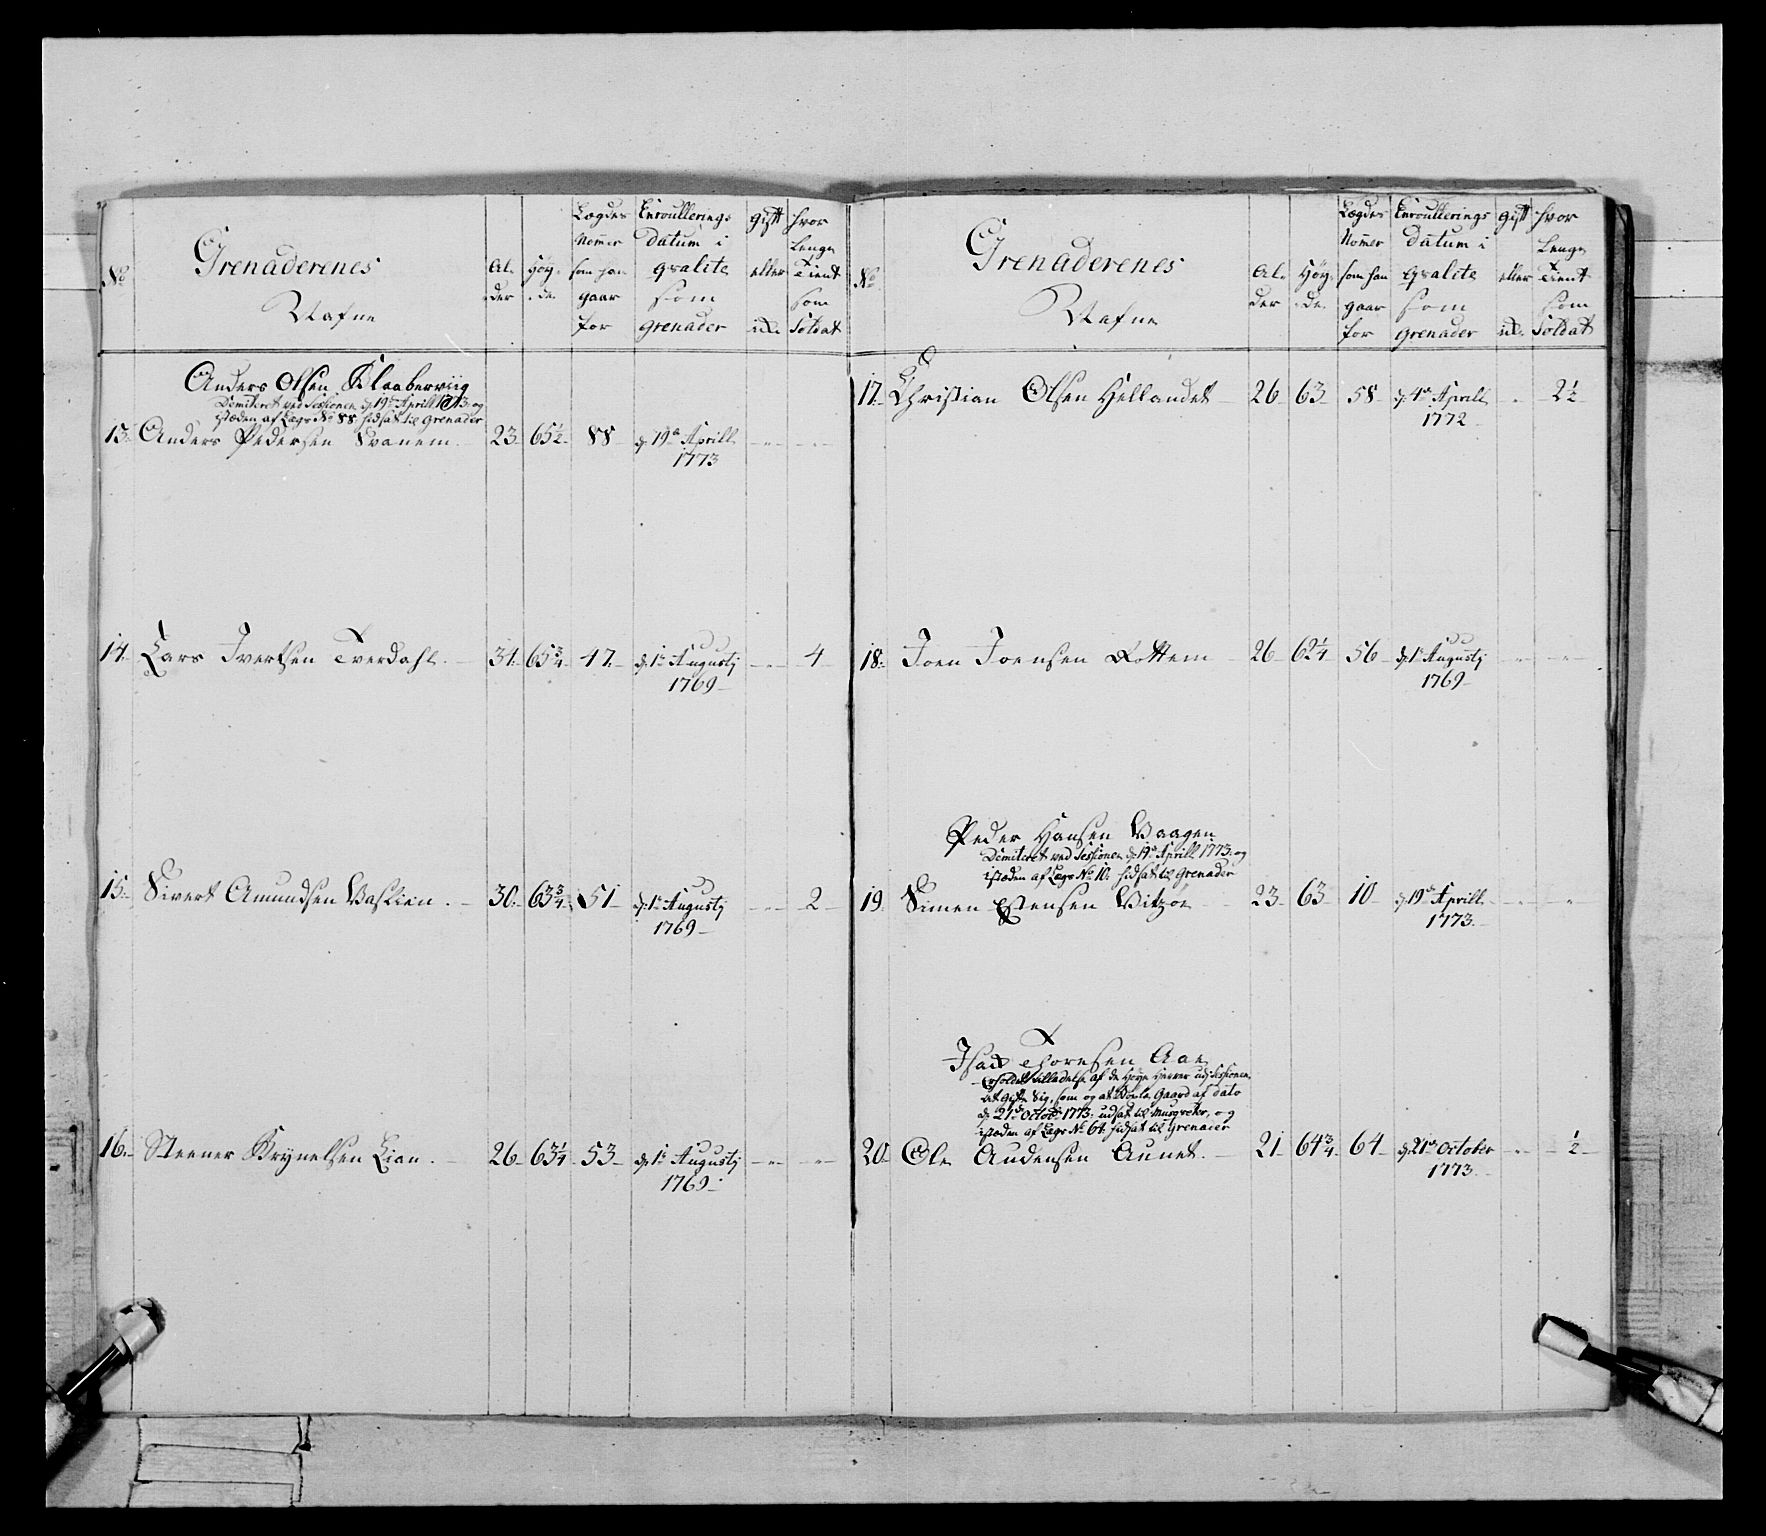 No
Grenaderenes
Nafne
Al-
der
Høy-
de.
Lægdes
Nomer
som han
gaar
for
Enroullerings
datum i
qvalite
som
Grenader
gift
eller
ud.
hvor
lenge
tient
som
Soldat
Anders Olsen Klaaberviig
Dimiteret ved Sessionen d. 19de Aprill 1773. og
istæden af Lægs No 88. hidsat til Grenader
13. Anders Pedersen Svanem. 23. 65½ 88 d. 19de Aprill
1773
14. Lars Ivertsen Tverdahl. 31. 65¾ 47. d. 1te Augustj 4
1769
15. Sivert Amundsen Vaslien. 30. 63¾ 51 d. 1te Augustj 2
1769
16. Steener Brynelsen Lian. 26 63¼ 53 d. 1te Augustj
1769
No
Grenaderenes
Nafne
Al-
der
Høy-
de.
Lægdes
Nomer
som han
gaar
for
Enroullerings
datum i
qvalite
som
Grenader
gift
eller
ud.
hvor
lenge
tient
som
Soldat
17. Christian Olsen Hellandet 26 63 58 d. 4de Aprill 2½
1772
18. Joen Joensen Rottem 26 62¼ 56 d. 1te Augustj
1769
Peder Hansen Vaagen
Dimiteret ved Sessionen d. 19de Aprill 1773. og
istæden af Lægs No 10. hidsat til Grenader
19. Simen Estensen Vitzøe 23 63 10 d. 19de Aprill
1773.
Isach Thoresen Aae
Erholdet tilladelse af de Høye Herrer udj Sessionen
at gifte sig, som og at Gaard af dato
d. 21de Octobr 1773. udsat til Musqveter, og
istæden af Lægs No 64. hidsat til Grenader
20. Ole Audensen Aunet. 21 64¾ 64 d. 21de October ½
1773.